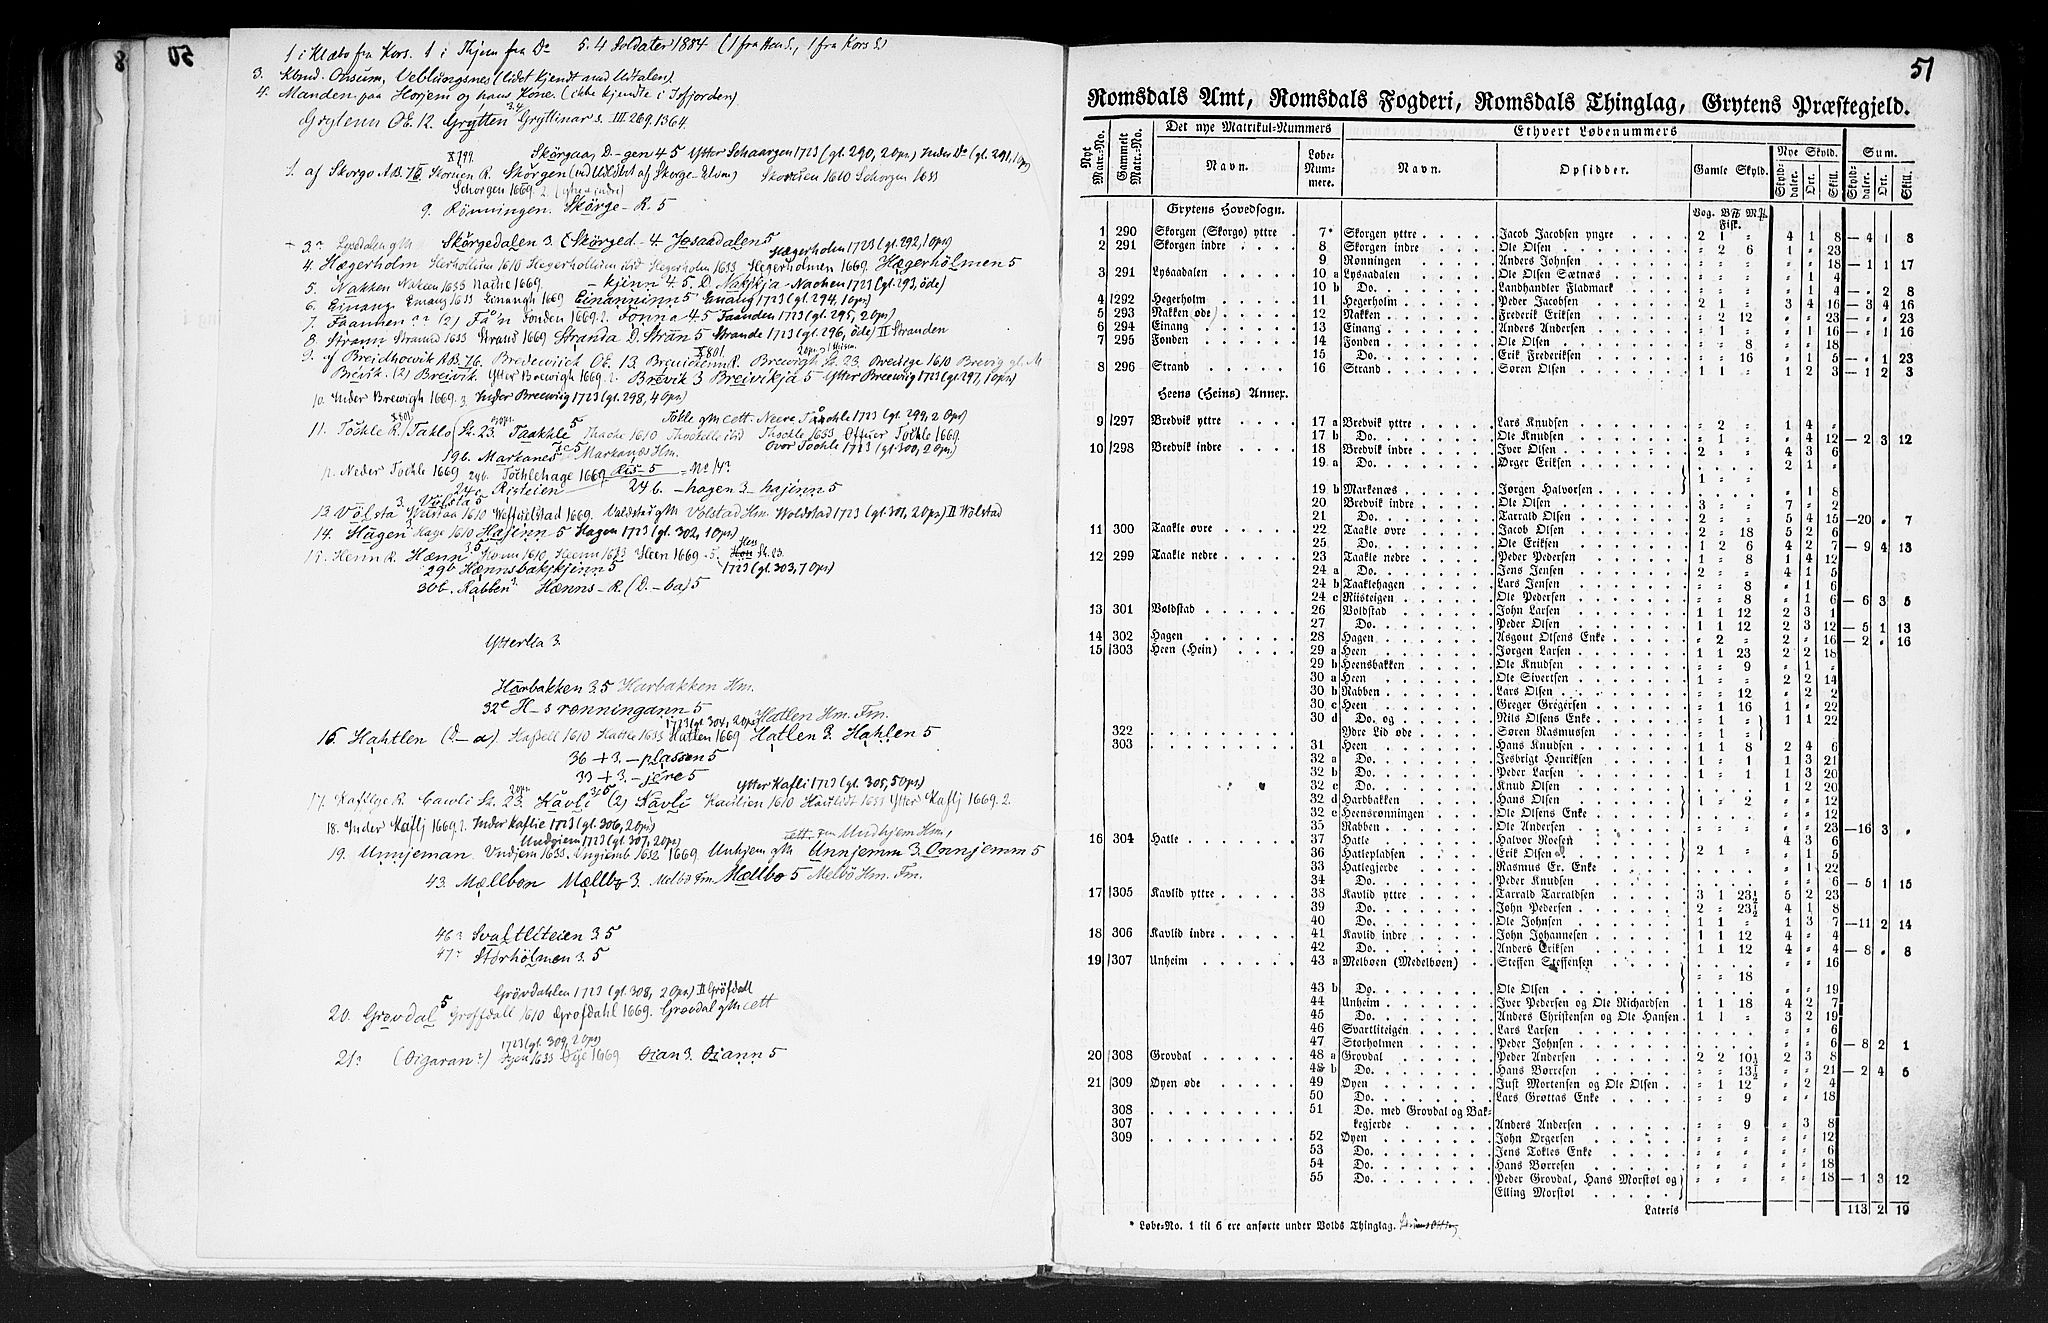 8
50
1 i Klæbo fra Kors. 1 i Thjem fra Do 5. 4 Soldater 1884 (1 fra Hens., 1 fra Kors s.)
3. Kbmd. Onsum, Veblungsnes (lidt kjendt med Udtalen).
4. Manden paa Horjem og hans Kone. (ikke kjendte i Isfjorden)
Grytenn OE. 12. Grÿtten 3.4 Gryttinar s. III 269. 1364.
Skörgaa, D. -gen 4 5 Ytter Schaargen 1723 (gl. 290, 2 Ops.) Inder Do (gl. 291, 1 Op)
1. af Skorgo AB. 76 Skoruen R. Skörgen Skorden 1610 Schorgen 1633
Schorgen 1669. 2. (ytre - indre)
9. Rönningen. Skörge- R. 5
3. Lysedalen gM Skörgedalen 3. Skörged- 4. Josaadalen 5
Hægerholen 1723 (gl. 292, 1 Ops)
4. Hægerholm Herhollum 1610 Hegerhollum ibid Hegerholm 1633 Hegerholmen 1669. Hægerhölmen 5
5. Nakken Nacken 1633 Nache 1669. -kjinn 4. 5. D. Nakkja- Nachen 1723 (gl. 293, öde)
6. Einang Emang 1633 Einangh 1669 Einanninn 5 Emang 1723 (gl. 294, 1 Ops)
7. Faannen (2) Få'n Fonden 1669. 2. Fonna 4. 5 Faanden 1723 (gl. 295, 2 Ops)
8. Strann Strand 1633 Strand 1669 Stranda D. Strann 5 Strande 1723 (gl. 296, öde) II Stranden
9. af Breidhowik AB. 76. Bredewiick OE. 13. R. Brewigh St. 23. Bredvige 1610 Brevig gl. M
Brevik. (2) Breivik. Ytter Brewigh 1669. 2. Brevik 3 Breivikja 5 Ytter Breewiig 1723 (gl. 297, 1 Ops)
10. Inder Brewigh 1669. 3. Inder Breewiig 1723 (gl. 298, 4 Ops)
Tokle gM cett. Neere Taachle 1723 (gl. 299, 2 Ops)
11. Tochle R. Taklo St. 23. Taakhle 5 Thache 1610 Thockelle ibid Thockle 1633 Offuer Tochle 1669.
19 b. Markanes 5 Markanæs Hm. Over Tochle 1723 (gl. 300, 2 Ops)
12. Neder Tochle 1669. 24 b. Tochlehage 1669 Ris- 5 = No 14?
24 c. Risteien 24 b. -hagen 3 -hajinn 5
13. Völsta 3. Völsta 5 1610 Weffuelstad 1669. Valdstad gM Volstad Hm. Woldstad 1723 (gl. 301, 2 Ops) II Wolstad
14. Hagen 3 Hage 1610 Hajinn 5 Hagen 1723 (gl. 302, 1 Ops)
15. Henn R. Hænn 3. 5 Hönn 1610, Heenn 1633 Heen 1669. 5. Hen St. 23.
29 b Hænnsbakjkjinn 5 1723 (gl. 303, 7 Ops)
30 b. Rabben 3. Hænns- R. (D. -ba) 5
Ytterlia 3.
Harbakken 3. 5 Harbakken Hm.
32 e H- s rönningann 5
1723 (gl. 304, 2 Ops) Hatlen Hm. Fm.
16. Hahtlen (D- a) Haßell 1610 Hattle 1633 Hatlen 1669 Hatlen 3. Hahlen 5
36 + 3. - plassen 5
33 + 3. - jere 5
Ytter Kafli 1723 (gl. 305, 5 Ops)
17. Kaflye R. Cawli St. 23. Kåvli 3. 5 (2) Kavli Kaulien 1610 Kaulidt 1633 Ytter Kaflj 1669. 2.
18. Inder Kaflj 1669. 2. Inder Kaflie 1723 (gl. 306, 2 Ops)
Undjem 1723 (gl. 307, 2 Ops) cett. Fm Undhjem Hm.,
19. Unnjeman. Undjem 1633. 1669. Unhjem gM Unnjemm 3. Onnjemm 5
43. Mællbøn Mællbo 3. Melbø Fm. Mællbø 5 Melbö Hm. Fm.
46. Svaltliteien 3. 5
47. Storhölmen 3. 5
Grövdahlen 1723 (gl. 308, 2 Ops) II Gröfdall
20. Grøvdal 5 Groffdall 1610 Grofdahl 1669. Grovdal gM cett
1723 (gl. 309, 2 Ops)
21. (Oigaran?) Öyen 1633 Öye 1669 Öian 3. Öiann 5
51
Romsdals Amt, Romsdals Fogderi, Romsdals Thinglag, Grytens Præstegjeld.
Nyt Matr.-No. Gammelt Matr.-No. Det nye Matrikul-Nummers Ethvert Løbenummers
Navn. Løbe-Nummere. Navn. Opsidder. Gamle Skyld. Nye Skyld. Sum.
Skylddaler. Ort. Skill. Skylddaler. Ort. Skill.
Grytens Hovedsogn. Vog. B℔ M℔. Fisk.
1 290 Skorgen (Skorgo) yttre 7* Skorgen yttre Jacob Jacobsen yngre 2 1 „ 4 1 8 — 4 1 8
2 291 Skorgen indre 8 Skorgen indre Ole Olsen „ 2 6 1 „ 23
9 Rønningen Anders Johnsen „ „ „ „ „ 18 — 1 1 17
3 291 Lysaadalen 10 a Lysaadalen Ole Olsen Sætnæs „ „ „ „ 1 4
10 b Do. Landhandler Fladmark „ „ „ „ 1 4 — „ 2 8
4 292 Hegerholm 11 Hegerholm Peder Jacobsen 2 1 „ 3 4 16 — 3 4 16
5 293 Nakken øde 12 Nakken Frederik Eriksen „ 2 12 „ „ 23 — „ „ 23
6 294 Einang 13 Einang Anders Andersen „ 1 „ „ 1 16 — „ 1 16
7 295 Fonden 14 Fonden Ole Olsen „ „ 8 „ „ 18
15 Do. Erik Frederiksen „ „ 16 „ 1 5 — „ 1 23
8 296 Strand 16 Strand Søren Olsen 1 1 „ 1 2 3 — 1 2 3
Heens (Heins) Annex.
9 297 Bredvik yttre 17 a Bredvik yttre Lars Knudsen „ 2 „ 1 4 „
17 b Do. Ole Knudsen „ 1 „ „ 4 12 — 2 3 12
10 298 Bredvik indre 18 Bredvik indre Iver Olsen 2 „ „ 4 3 6
19 a Do. Ørger Eriksen 2 1 „
1 „ „
19 b Markenæs Jørgen Halvorsen „ 1 8
20 Bredvik indre Ole Olsen 3 „ „ 7 „ 2
21 Do. Tarrald Olsen 2 „ „ 5 4 15 —20 „ 7
11 300 Taakle øvre 22 Taakle øvre Jacob Olsen 2 „ 18 5 2 6
25 Do. Ole Eriksen 1 2 6 4 2 7 — 9 4 13
12 299 Taakle nedre 23 Taakle nedre Peder Pedersen 1 „ 8 1 4 12
24 a Do. Jens Jensen 2 „ „ 4 1 5
24 b Taaklehagen Lars Jensen „ „ 8 „ 1 6
24 c Riisteigen Ole Pedersen „ „ 8 „ 1 6 — 6 3 5
13 301 Voldstad 26 Voldstad John Larsen 1 1 12 2 3 1
27 Do. Peder Olsen 1 1 12 2 3 12 — 5 1 13
14 302 Hagen 28 Hagen Asgout Olsens Enke „ 2 „ 2 „ 16 — 2 „ 16
15 303 Heen (Hein) 29 a Heen Jørgen Larsen 1 1 23 2 2 18
29 b Heensbakken Ole Knudsen „ „ 9 „ 1 „
30 a Heen Ole Sivertsen 1 „ „ 2 2 14
30 b Rabben Lars Olsen „ „ 12 „ 2 2
30 c Heen Greger Gregersen „ 1 16 1 „ 22
30 d Do. og Nils Olsens Enke „ 1 „ 1 1 22
322 Ydre Lid øde Søren Rasmussen „ 1 „
303 31 Heen Hans Knudsen 1 1 8 2 4 6
32 a Do. Jesbrigt Henriksen 1 „ 1 1 3 21
32 b Do. Peder Larsen 1 „ 1 1 3 20
32 c Do. Knud Olsen 1 2 20
32 d Hardbakken Hans Olsen 1 „ 2 „ „ 12
32 e Heensrønningen Ole Olsens Enke „ „ 12
35 Rabben Ole Andersen „ „ 23 —16 3 „
16 304 Hatle 37 Hatle Halvor Roesen 4 3 6
36 Hatlepladsen Erik Olsen 2 1 „ „ 1 5
33 Hatlegjerde Rasmus Er. Enke „ „ 22
34 Do. Peder Knudsen „ „ 6 — 5 1 15
17 305 Kavlid yttre 38 Kavlid yttre Tarrald Tarraldsen 3 1 23½ 5 2 23
39 Do. John Pedersen 2 „ 23½ 4 1 8
40 Do. Ole Johnsen „ „ „ 1 3 7 —11 2 14
18 306 Kavlid indre 41 Kavlid indre John Johannesen 1 1 12 4 „ 4
42 Do. Anders Eriksen 1 1 12 4 „ 4 — 8 „ 8
19 307 Unheim 43 a Melbøen (Medelbøen) Steffen Steffensen „ „ 16
„ „ 18
43 b Do. Ole Olsen „ „ 19
44 Unheim Iver Pedersen og Ole Richardsen 1 1 18 4 2 7
45 Do. Anders Christensen og Ole Hansen 1 1 „ 3 2 19
46 Svartliteigen Lars Larsen „ „ 6
47 Storholmen Peder Johnsen „ „ 6 — 8 2 1
20 308 Grovdal 48 a Grovdal Peder Andersen 2 2 10½ 2 3 8
48 b Do. Hans Børresen „ „ 13½ „ „ 21 — 2 4 5
21 309 Øyen øde 49 Øyen Just Mortensen og Ole Olsen „ 1 12 „ 2 4
50 Do. Lars Grøttas Enke „ „ 9 „ „ 18
308 51 Do. med Grovdal og Bak-
307 kegjerde Anders Andersen „ „ 9 „ 3 8
309 52 Øyen John Ørgersen „ „ „ „ „ 12
53 Do. Jens Tokles Enke „ „ „ „ „ 6
54 Do. Hans Børresen „ „ „ „ „ 18
55 Do. Peder Grovdal, Hans Morstøl og „ „ „ „ „ 18 — 1 3 12
Elling Morstøl
Lateris 113 2 19
* Løbe-No. 1 til 6 ere anførte under Volds Thinglag.